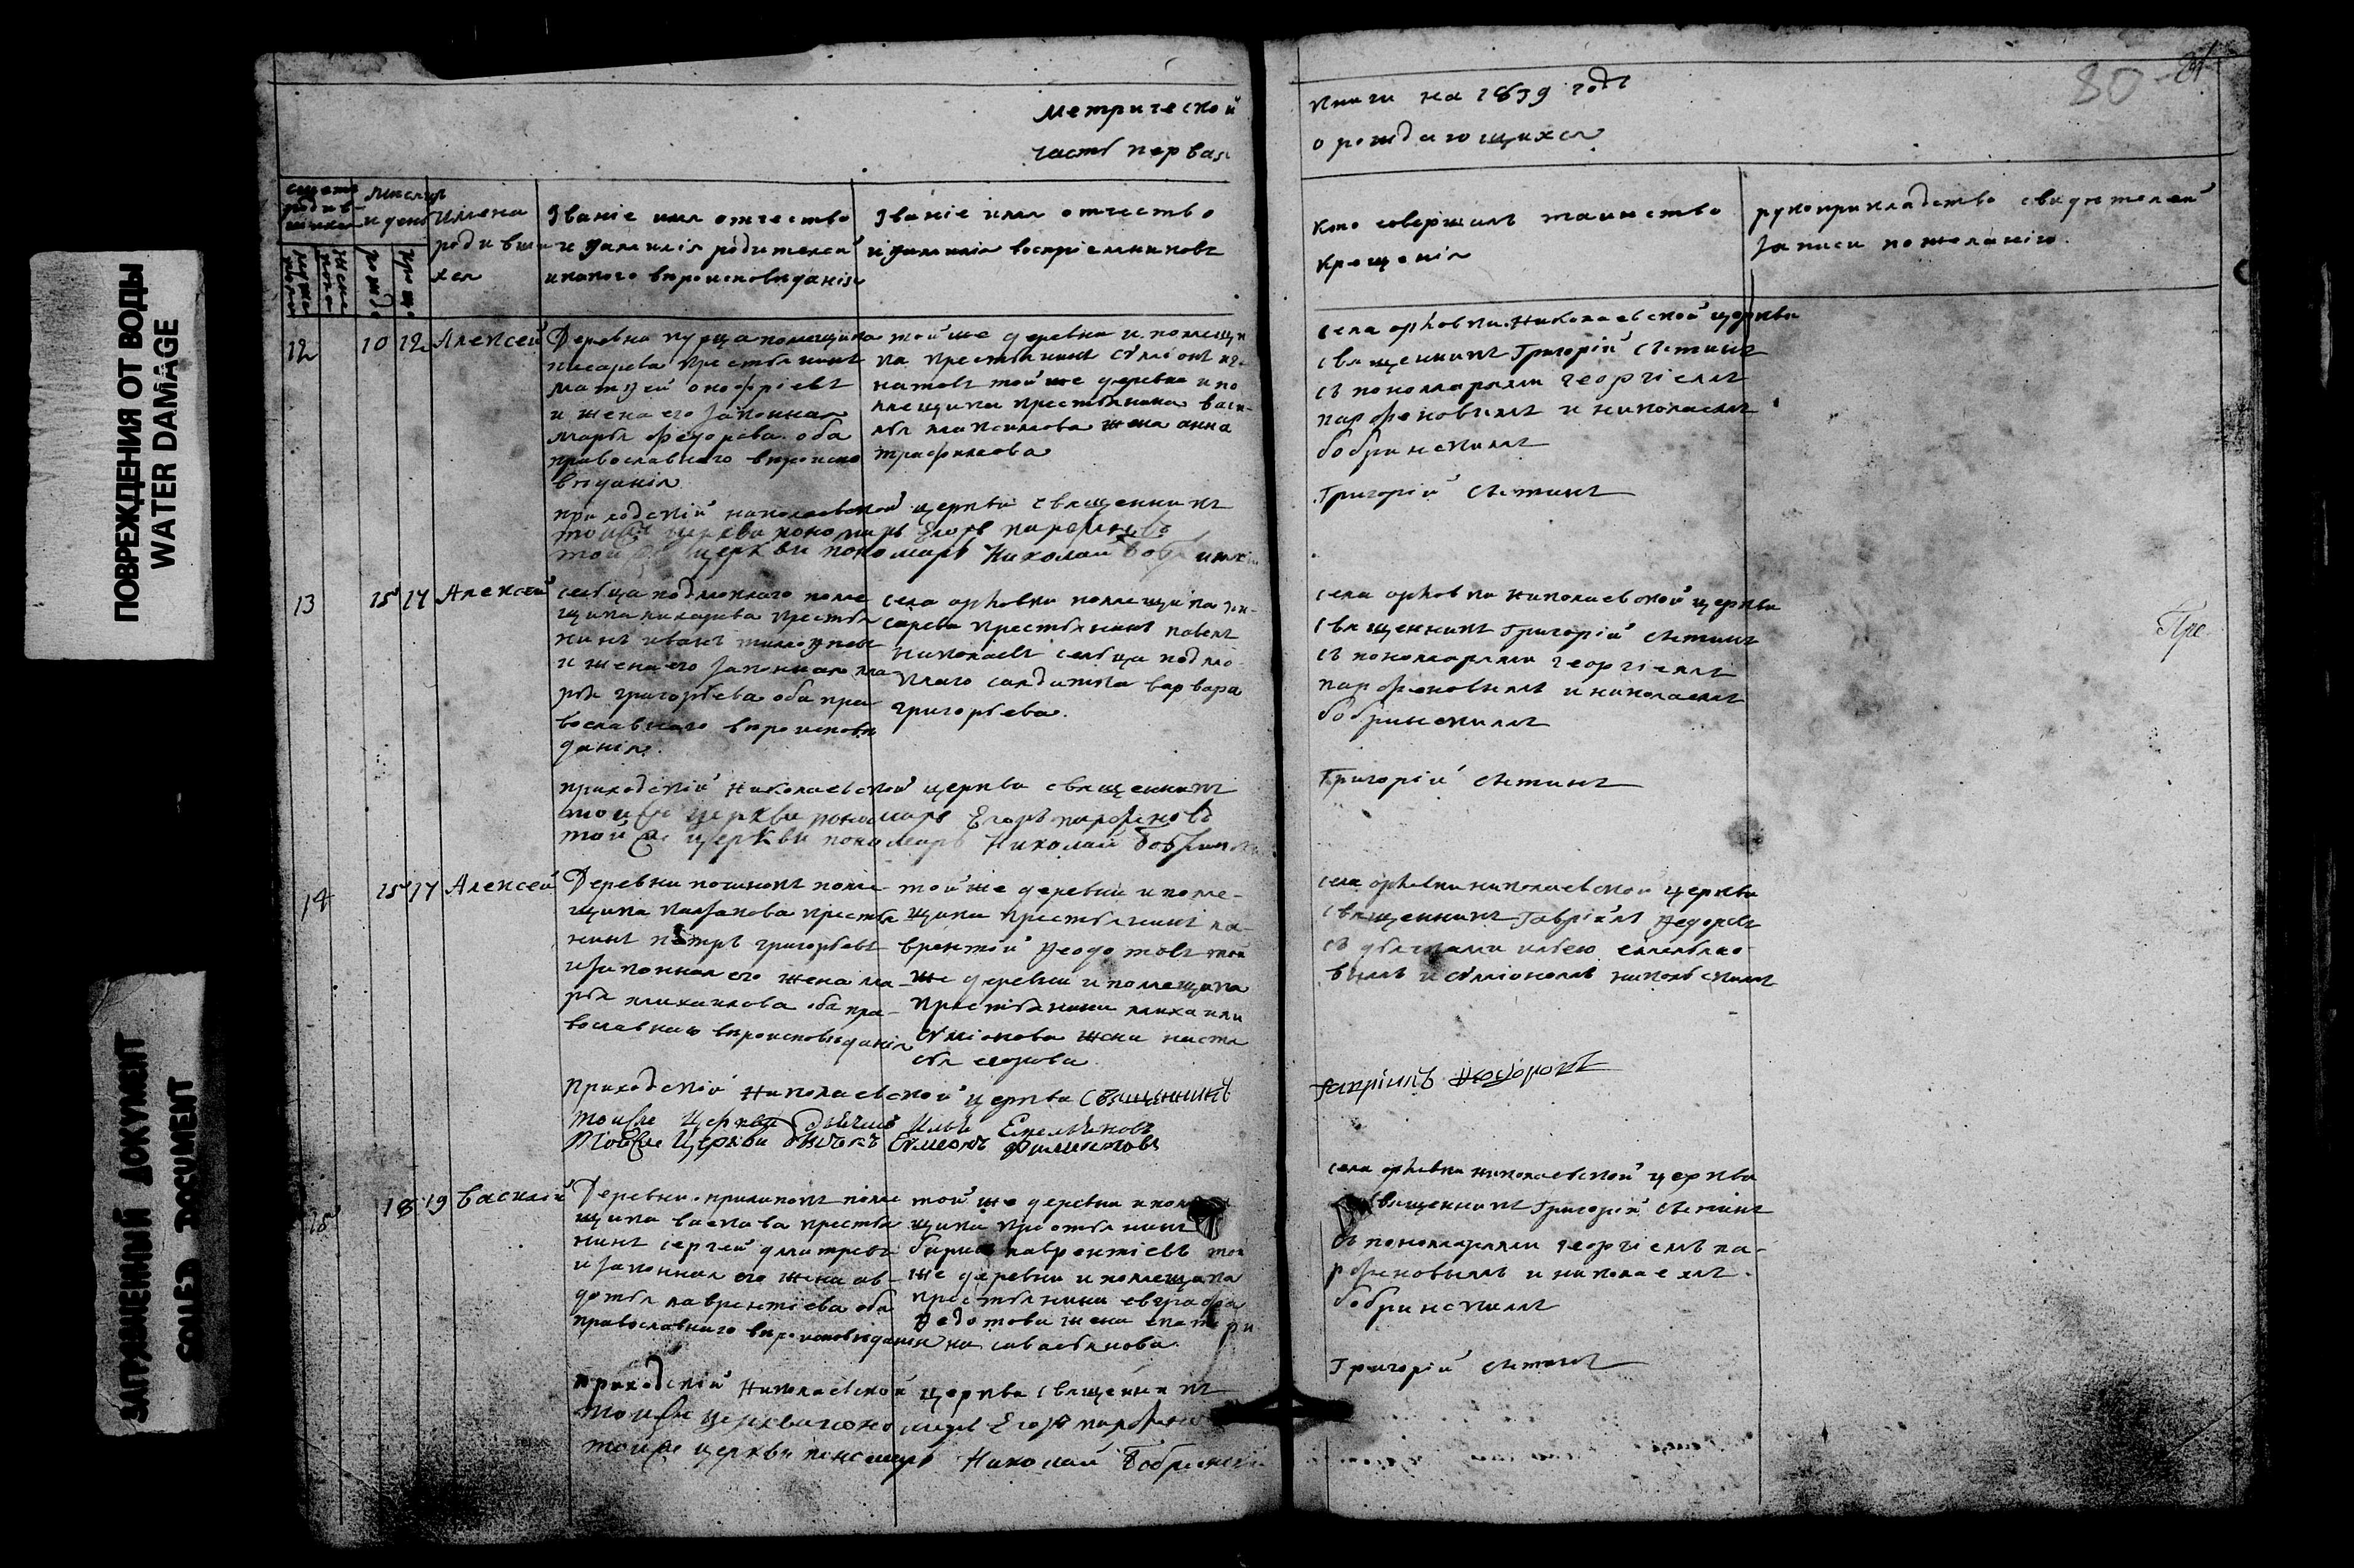 ПОВРЕЖДЕНИЯ ОТ ВОДЫ
WATER DAMAGE
ЗАГРЯЗНЕННЫЙ ДОКУМЕНТ
SOILED DOCUMENT
Метрической
часть первая
книги на 1839 годъ
о рождающихся
80
Имена
родивши
хся
Званіе имя отчество
и фамилія родителей
и какого вѣроисповѣданія
Званіе имя отчество
и фамилія воспріемниковъ
Кто совершалъ таинство
крещенія
рукоприкладство свидѣтелей
записи по желанію.
12 10 12 Алексей
Деревни помещика
писарева крестьянинъ
онофріевъ
и жена его законная
марья федорова оба
православнаго вѣроиспо
вѣданія
той же деревни и помещи
ка крестьянинъ сѵміонъ
той же деревни и по
мещика крестьянина васи-
лья максимова жена анна
трофимова
села орловки николаевской церкви
священникъ Григорій Сѣтинъ
съ пономарями георгіемъ
парфеновымъ и николаемъ
бобринскимъ
приходскій николаевской церкви священникъ
Григорій Сѣтинъ
той же церкви пономарь Егоръ парфеновъ
той же церкви пономарь Николай Бобринскій
13 15 17 Алексей
сельца подмоклаго поме
щика писарева крестья
нинъ иванъ
и жена его законная ма
рья григорьева оба пра
вославнаго вѣроисповѣ
данія.
села орловки помещика пи-
сарева крестьянинъ павелъ
николаевъ сельца подмо
клаго салдатка варвара
григорьева.
села орловки николаевской церкви
священникъ Григорій Сѣтинъ
съ пономарями георгіемъ
парфеновымъ и николаемъ
бобринскимъ
приходскій николаевской церкви священникъ
Григорій Сѣтинъ
той же церкви пономарь Егоръ парфеновъ
той же церкви пономарь Николай Бобринскій
14 15 17 Алексей
Деревни починокъ поме-
щика крестья
нинъ петръ григорьевъ
и законная его жена ма-
рья михаилова оба пра-
вославнаго вѣроисповѣданія
той же деревни и поме-
щика крестьянинъ ла-
врентій Ѳедотовъ той
же деревни и помещика
крестьянина михаила
сѵміонова жена наста
сья
села орловки николаевской церкви
священникъ Гавріилъ Ѳедоровъ
съ дьячками ильею емелья-
вымъ и сѵміономъ никольскимъ
Приходскій Николаевской церкви священникъ
Гавріилъ Ѳедоровъ
той же Церкви дьячекъ Илья Емельяновъ
той же Церкви дьячекъ Сѵмеонъ
15 18 19 Василій
Деревни поме
щика крестья
нинъ сергей дмитревъ
и законная его жена ав-
дотья лаврентіева оба
православнаго вѣроисповѣданія
той же деревни и
щика крестьянинъ
лаврентіевъ той
же деревни и помещика
крестьянина евграфа
Ѳедотова жена екатери
на савостьянова.
села орловки николаевской церкви
священникъ Григорій Сѣтинъ
съ пономарями георгіемъ па-
рфеновымъ и николаемъ
бобринскимъ
приходскій Николаевской церкви священникъ
Григорій Сѣтинъ
той же церкви пономарь Егоръ парфеновъ
той же церкви пономарь Николай Бобринскій